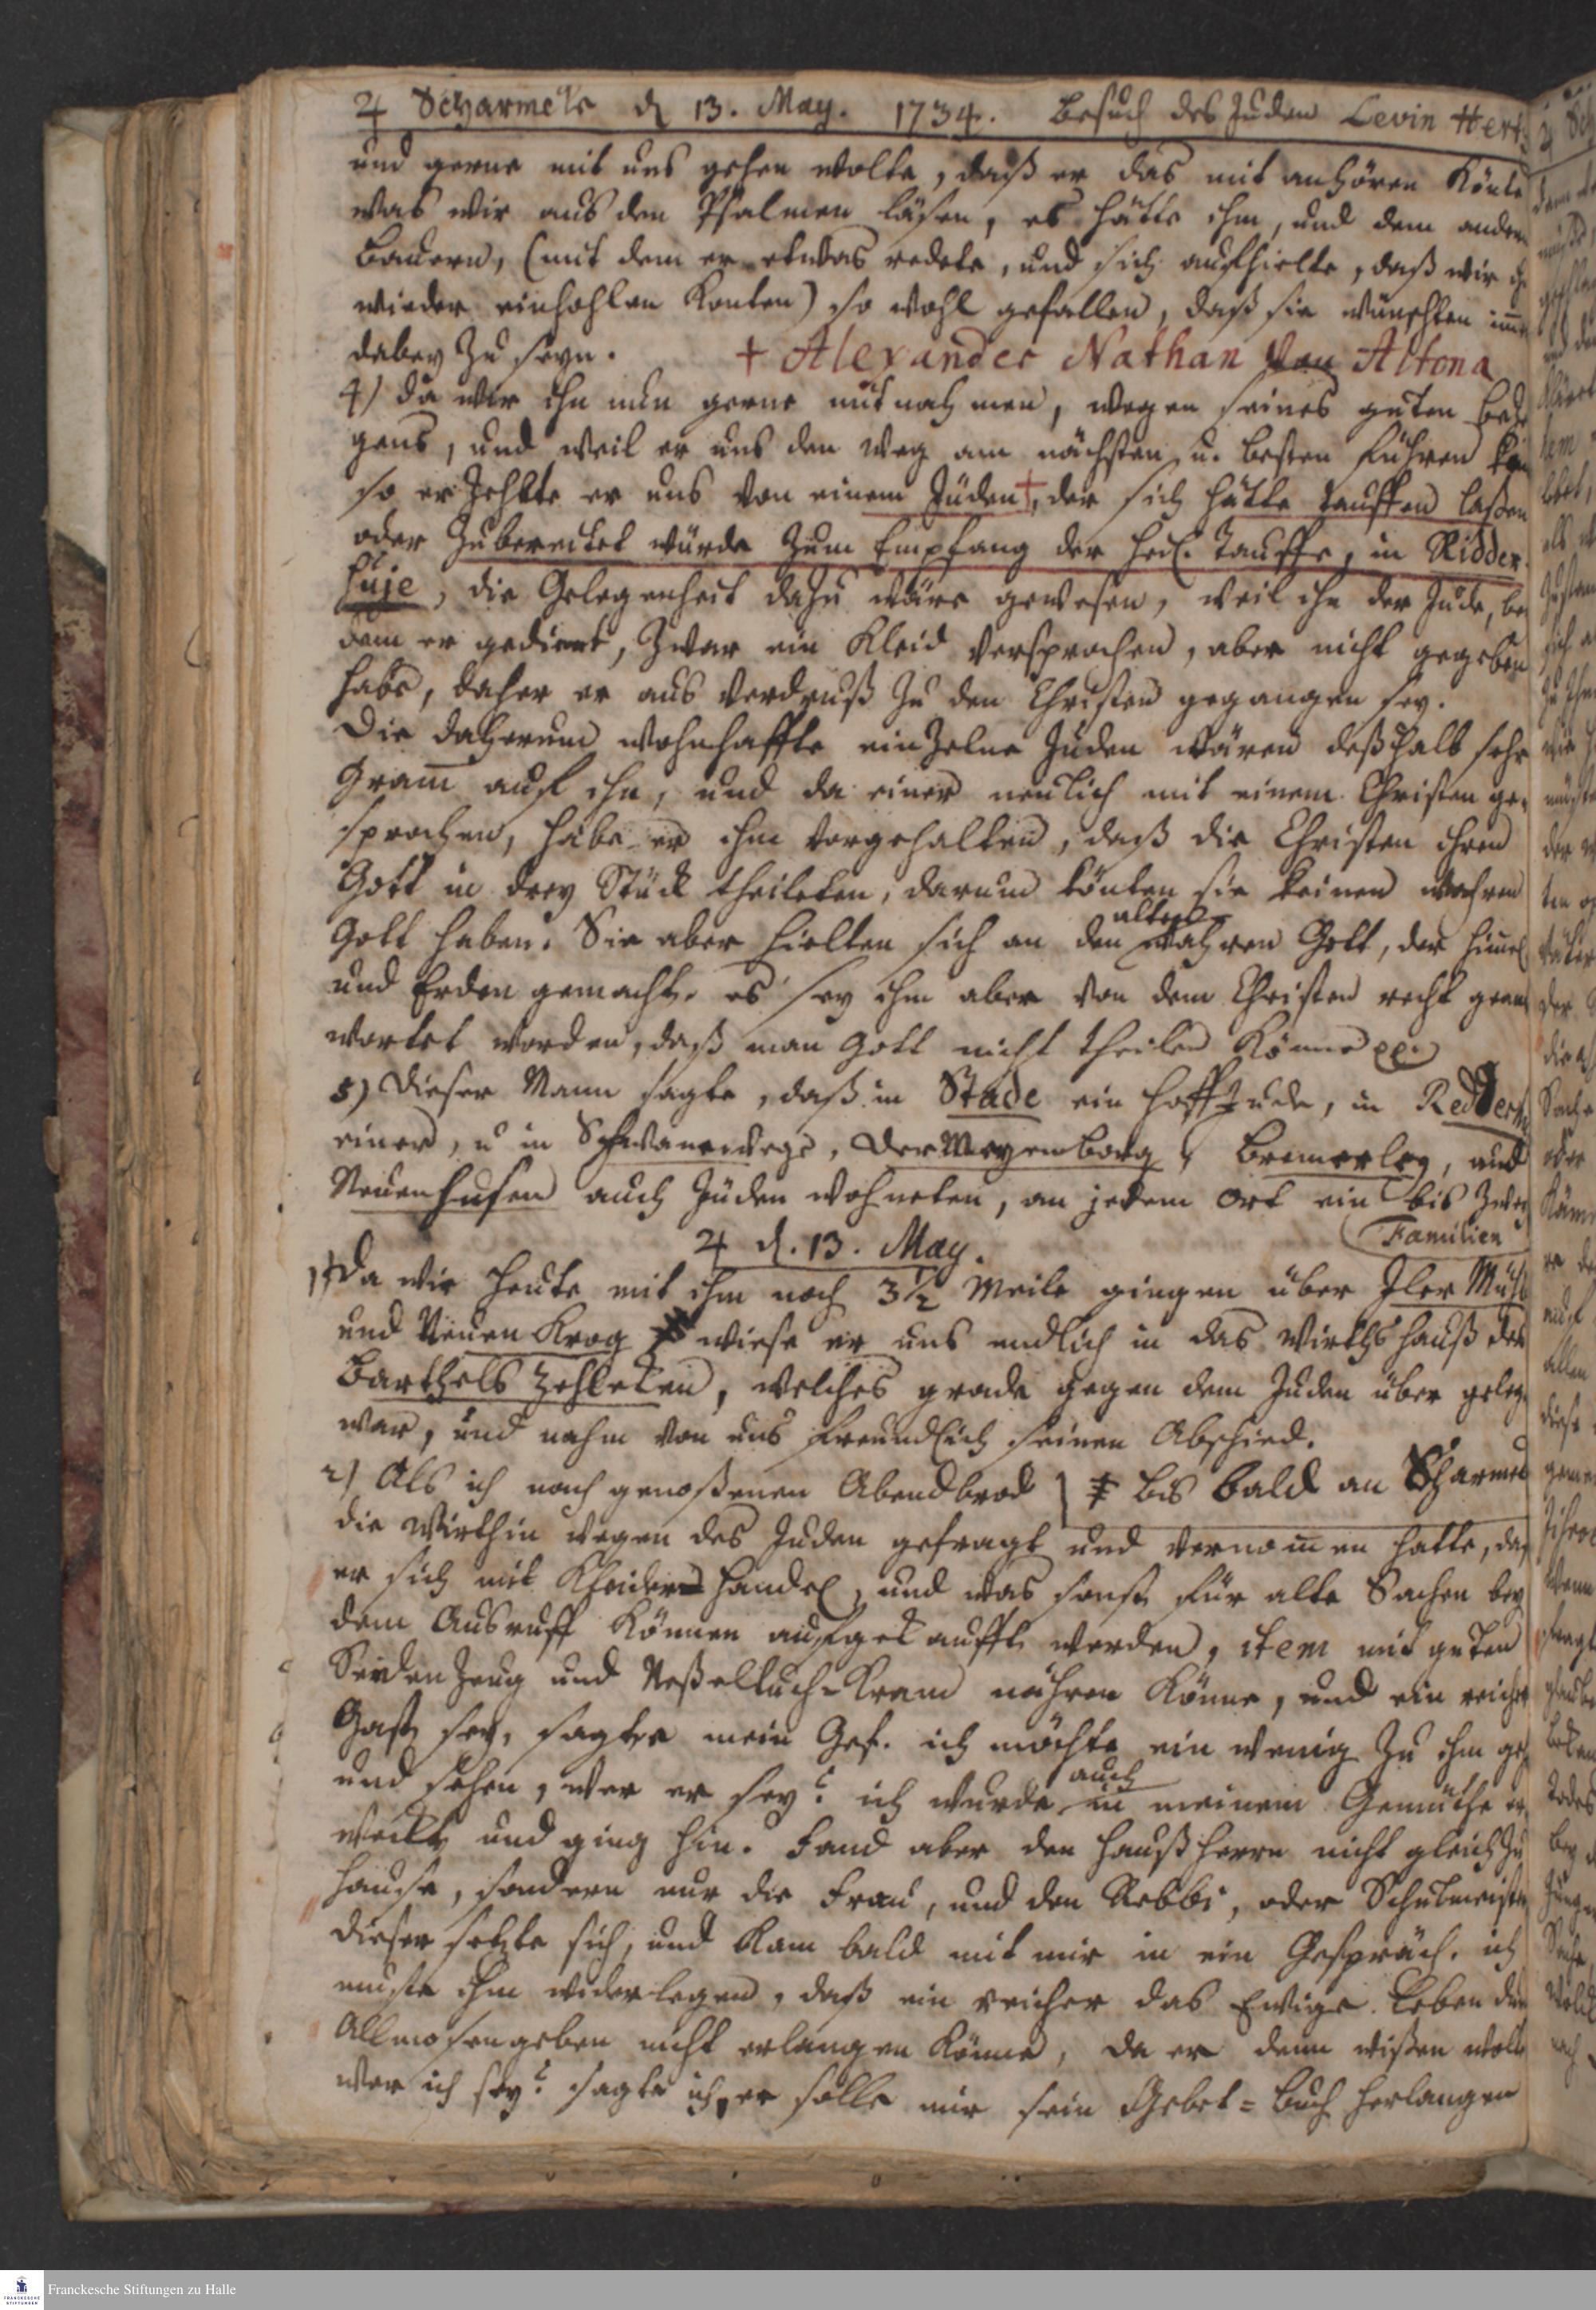 ♃ Scharmeke d 13. May. 1734. Besuch des Juden Levin Hertz
und gerne mit uns gehen wolte, daß er das mit anhören könte
was wir aus den Psalmen läsen, es hätte ihm, und dem andern
Bauern, (mit dem er etwas redete, und sich aufhielte, daß wir ihn
wieder einhohlen konten) so wohl gefallen, daß sie wünschten imer
dabey zu seyn. + Alexander Nathan von Altona
4) da wir ihn nun gerne mitnahmen, wegen seines guten Beze
gens, und weil er uns den Weg am nächsten u. besten führen kon
so erzehlte er uns von einem Juden +, der sich hätte tauffen laßen
oder zubereitet würde zum Empfang der heil. Tauffe, in Ridder
huje, die Gelegenheit dazu wäre gewesen, weil ihn der Jude, bei
dem er gedient, zwar ein Kleid versprochen, aber nicht gegeben
habe, daher er aus Verdruß zu den Christen gegangen sey.
Die daherum wohnhaffte einzelne Juden wären deßhalb sehr
gram auf ihn, und da einer neulich mit einem Christen ge-
sprochen, habe er ihm vorgehalten, daß die Christen ihren
Gott in drey Stück theileten, darum könten sie keinen wahren
Gott haben. Sie aber hielten sich an den alten wahren Gott, der Himel
und Erden gemacht. es sey ihm aber von dem Christen recht geant
wortet worden, daß man Gott nicht theilen könne
5) Dieser Mann sagte, daß in Stade ein HoffJude, in Redder
einer, u in Schwanewege, der Meyenborg, Bremerley, und
Neuenhusen auch Juden wohneten, an jedem Ort ein bis zwey
Familien
♃ d. 13. May.
1) Da wir heute mit ihm noch 3½ Meile gingen über Iler Mühl
und Neuen Krog ǂ wiese er uns endlich in das Wirthshauß des
Barthels Zehleken, welches grade gegen dem Juden über geleg
war, und nahm von uns freundlich seinen Abschied.
2) Als ich nach genoßenen Abendbrod ǂ bis bald an Scharmek
die Wirthin wegen des Juden gefragt und vernommen hatte, daß
er sich mit Kleider handel, und was sonst für alte Sachen bey
dem Ausruff können aufgekaufft werden, item mit guten
Seidenzeug und Neßeltuch-Kram nähren könne, und ein reicher
Gast sey, sagte mein Gef. ich möchte ein wenig zu ihm geh
und sehen, wer er sey? ich wurde auch in meinem Gemüthe er
weckt und ging hin. fand aber den Haußherrn nicht gleich zu
Hause, sondern nur die Frau, und den Rebbi, oder Schulmeister
dieser setzte sich, und kam bald mit mir in ein Gespräch. ich
muste ihm widerlegen, daß ein reicher das Ewige Leben durch
Allmosengeben nicht erlangen könne, da er denn wißen wolte
wer ich sey? sagte ich, er solle mir sein Gebet=Buch herlangen
Franckesche Stiftungen zu Halle